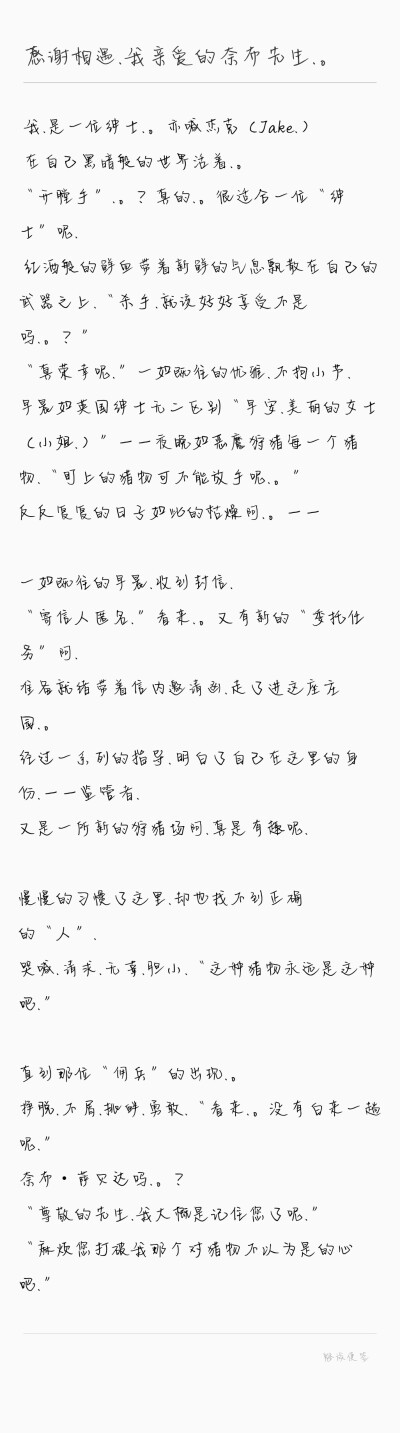 感谢相遇.我亲爱的奈布先生.。
我.是一位绅士.。亦喊杰克（Jake.）
在自己黑暗般的世界活着.。
“开膛手”.。？真的.。很适合一位“绅
士”呢.
红酒般的鲜血带着新鲜的气息飘散在自己的
武器之上.“杀手.就该好好享受不是
吗.。？”
“真荣幸呢.”一如既往的优雅.不拘小节.
早晨如英国绅士无二区别“早安.美丽的女士
（小姐.）”一一夜晚如恶魔狩猎每一个猎
物.“盯上的猎物可不能放手呢.。”
反反复复的日子如此的枯燥阿.。一一
一如既往的早晨.收到封信.
“寄信人匿名.”看来.。又有新的“委托任
务”阿.
准备就绪带着信内邀请函.走了进这座庄
园.。
经过一系列的指导.明白了自己在这里的身
份.一一监管者.
又是一所新的狩猎场阿.真是有趣呢.
慢慢的习惯了这里.却也找不到正确
的“人”.
哭喊.请求.无辜.胆小.“这种猎物永远是这种
吧.”
直到那位“佣兵”的出现.。
挣脱.不屑.挑衅.勇敢.“看来.。没有白来一趟
呢.”
奈布·萨贝达吗.。？
“尊敬的先生.我大概是记住您了呢.”
“麻烦您打破我那个对猎物不以为是的心
吧.”
魅族便签